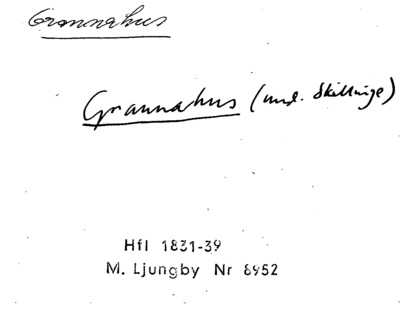 Grannahus
Grannahus (und. Skillinge)
Hfl 1831-39
M. Ljungby Nr 8952